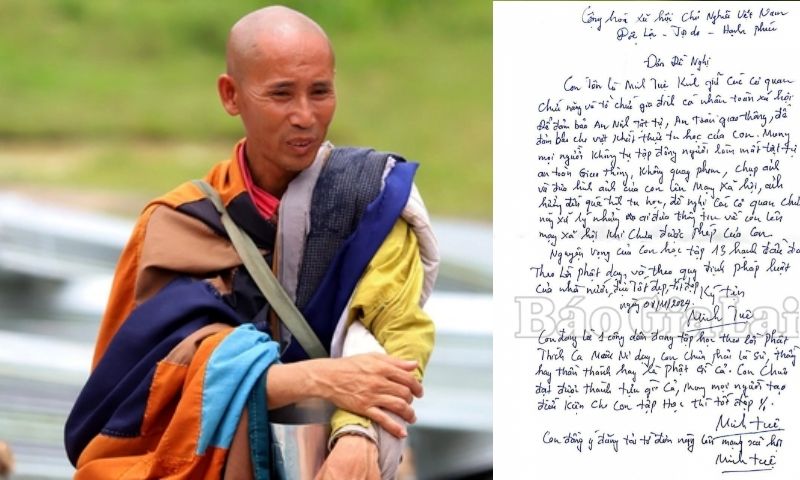 Cộng hoà xã hội Chủ Nghĩa Việt Nam
Độc Lập - Tự do - Hạnh phúc
Đơn Đề Nghị
Con Tên là Minh Tuệ Kính gửi các cơ quan
chức năng và tổ chức gia đình cá nhân toàn xã hội
để đảm bảo An Ninh trật tự, An Toàn giao thông, để
đảm bảo cho việc khất thực tu học của Con. Mong
mọi người không tụ tập đông người làm mất trật tự
an toàn Giao thông, không quay phim, chụp ảnh
và đưa hình ảnh của con lên Mạng xã hội, ảnh
hưởng đến quá trình tu học, đề nghị các cơ quan chức
năng xử lý những đưa thông tin về con lên
mạng xã hội khi chưa được phép của Con.
Nguyện vọng của Con học tập 13 hạnh đầu đà
Theo lời phật dạy, và theo quy định pháp luật
của nhà nước, tốt đẹp
Ký tên
Minh Tuệ
Báo Gia Lai
Con đang là 1 công dân đang tập học theo lời phật
Thích Ca Mâu Ni dạy, Con chưa phải là sư, thầy
hay thần thánh hay là phật gì cả. Con chưa
đạt được thành tựu gì cả, mong mọi người tạo
điều kiện cho con tập học thì tốt đẹp
Minh Tuệ
Con đồng ý đăng tải tờ đơn này lên mạng xã hội
Minh Tuệ